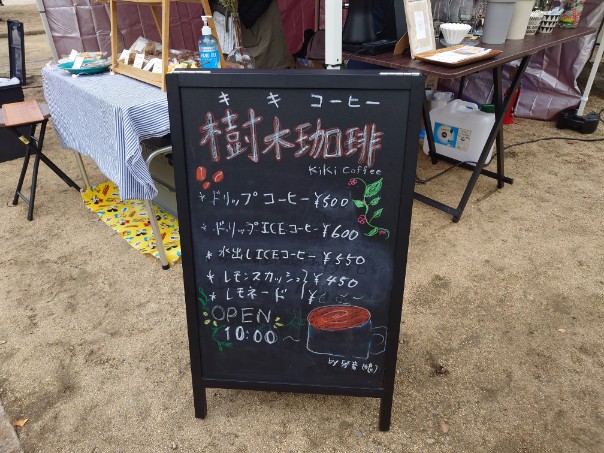 キキ コーヒー
樹木珈琲
KiKi Coffee
* ドリップコーヒー ¥500
* ドリップICEコーヒー ¥600
* 水出しICEコーヒー ¥550
* レモンスカッシュ ¥450
* レモネード
OPEN
10:00~